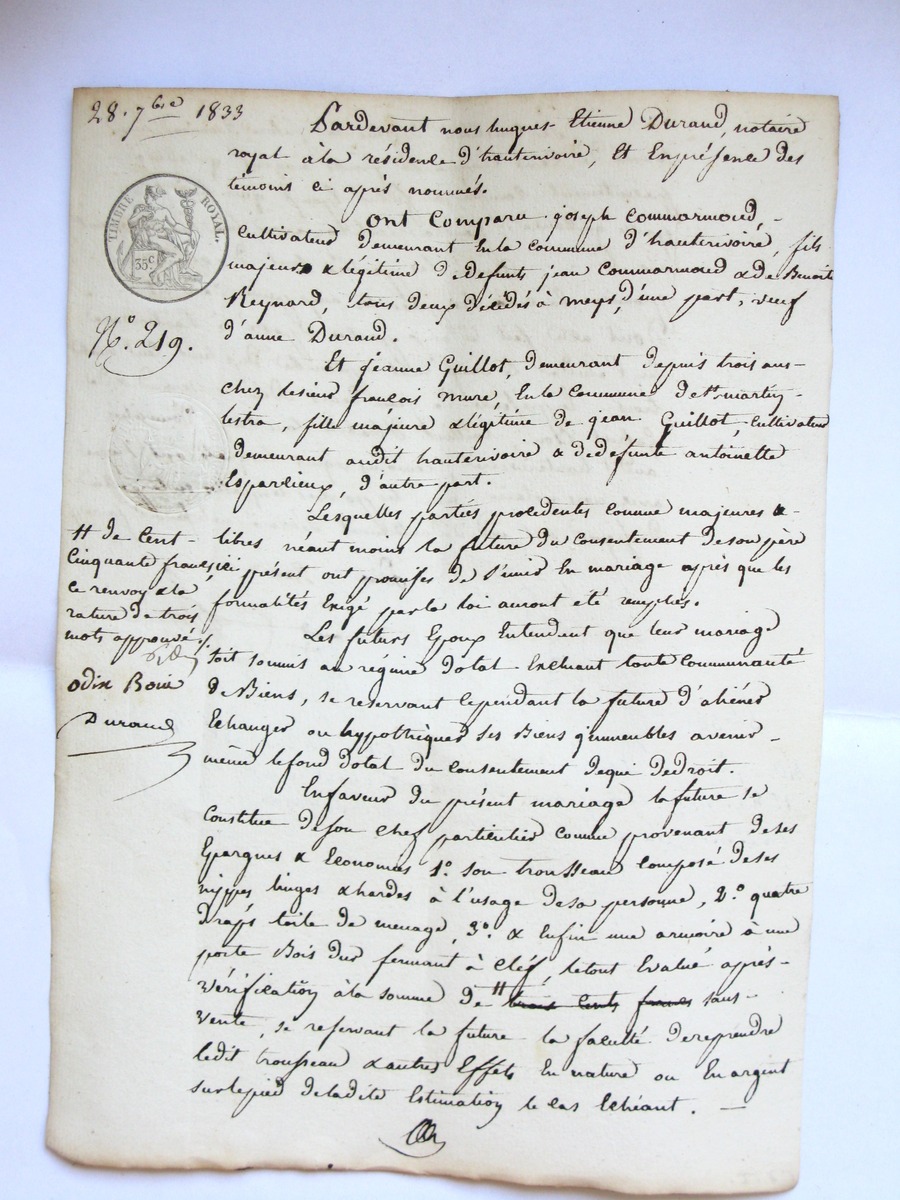 28. 7bre 1833
Pardevant nous hugues Etienne Durand, notaire
royal à la résidence d'hauterivoire, Et En présence des
témoins ci après nommés.
TIMBRE ROYAL.
35c
Ont Comparu joseph Commarmond,
Cultivateur demeurant En la Commune d'hauterivoire, fils
majeur & légitime de defunts jean Commarmond & de Benoite
Reynard, tous deux décédés à meys, d'une part, veuf
d'anne Durand.
N.o 219.
Et jeanne Guillot, demeurant depuis trois ans
chez le sieur françois mure, En la Commune de st martin
lestra, fille majeure & légitime de jean Guillot, Cultivateur
demeurant audit hauterivoire & de défunte antoinette
Esparlieux, d'autre part.
Lesquelles parties procédentes Comme majeures &
libres néant moins la future du Consentement de son père
ici présent ont promises de s'unir En mariage après que les
formalités Exigé par la loi auront été remplies.
Les futurs Epoux Entendent que leur mariage
soit soumis au régime dotal Excluant toute Communauté
de Biens, se reservant cependant la future d'aliéner
Echanger ou hypothéquer ses Biens immeubles avenir
même le fond dotal du Consentement de qui de droit.
En faveur du présent mariage la future se
Constitue de son chef particulier Comme provenant de ses
Epargnes & Economies 1.o son trousseau Composé de ses
nippes linges & hardes à l'usage de sa personne, 2.o quatre
draps toile de menage, 3.o & Enfin une armoire à une
porte Bois dur fermant à clef, le tout Evalué après
vérification à la somme de # trois Cents francs sans
vente, se reservant la future la faculté de reprendre
ledit trousseau & autres Effets En nature ou En argent
sur le pied de ladite Estimation le Cas Echéant.
# de Cent
Cinquante francs
ce renvoy & la
rature de trois
mots approuvés
odix Boui
Durand